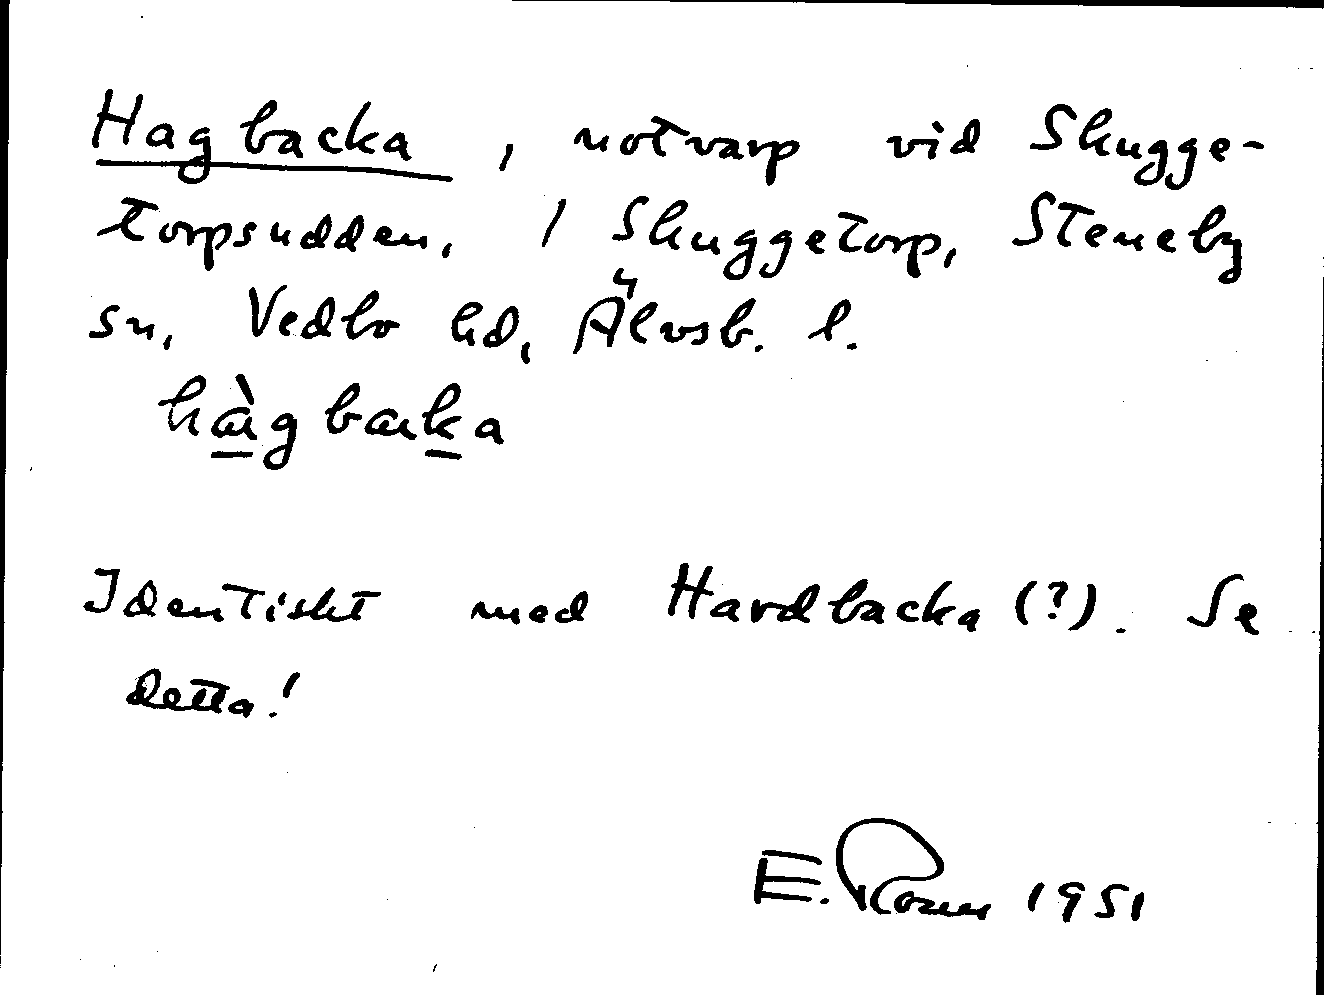 Hagbacka, notvarp vid Skugge-
torpsudden, / Skuggetorp, Steneby
sn, Vedbo hd, Älvsb. l.
hàgbaka
Identiskt med Hardbacka (?). Se
detta!
E. 1951